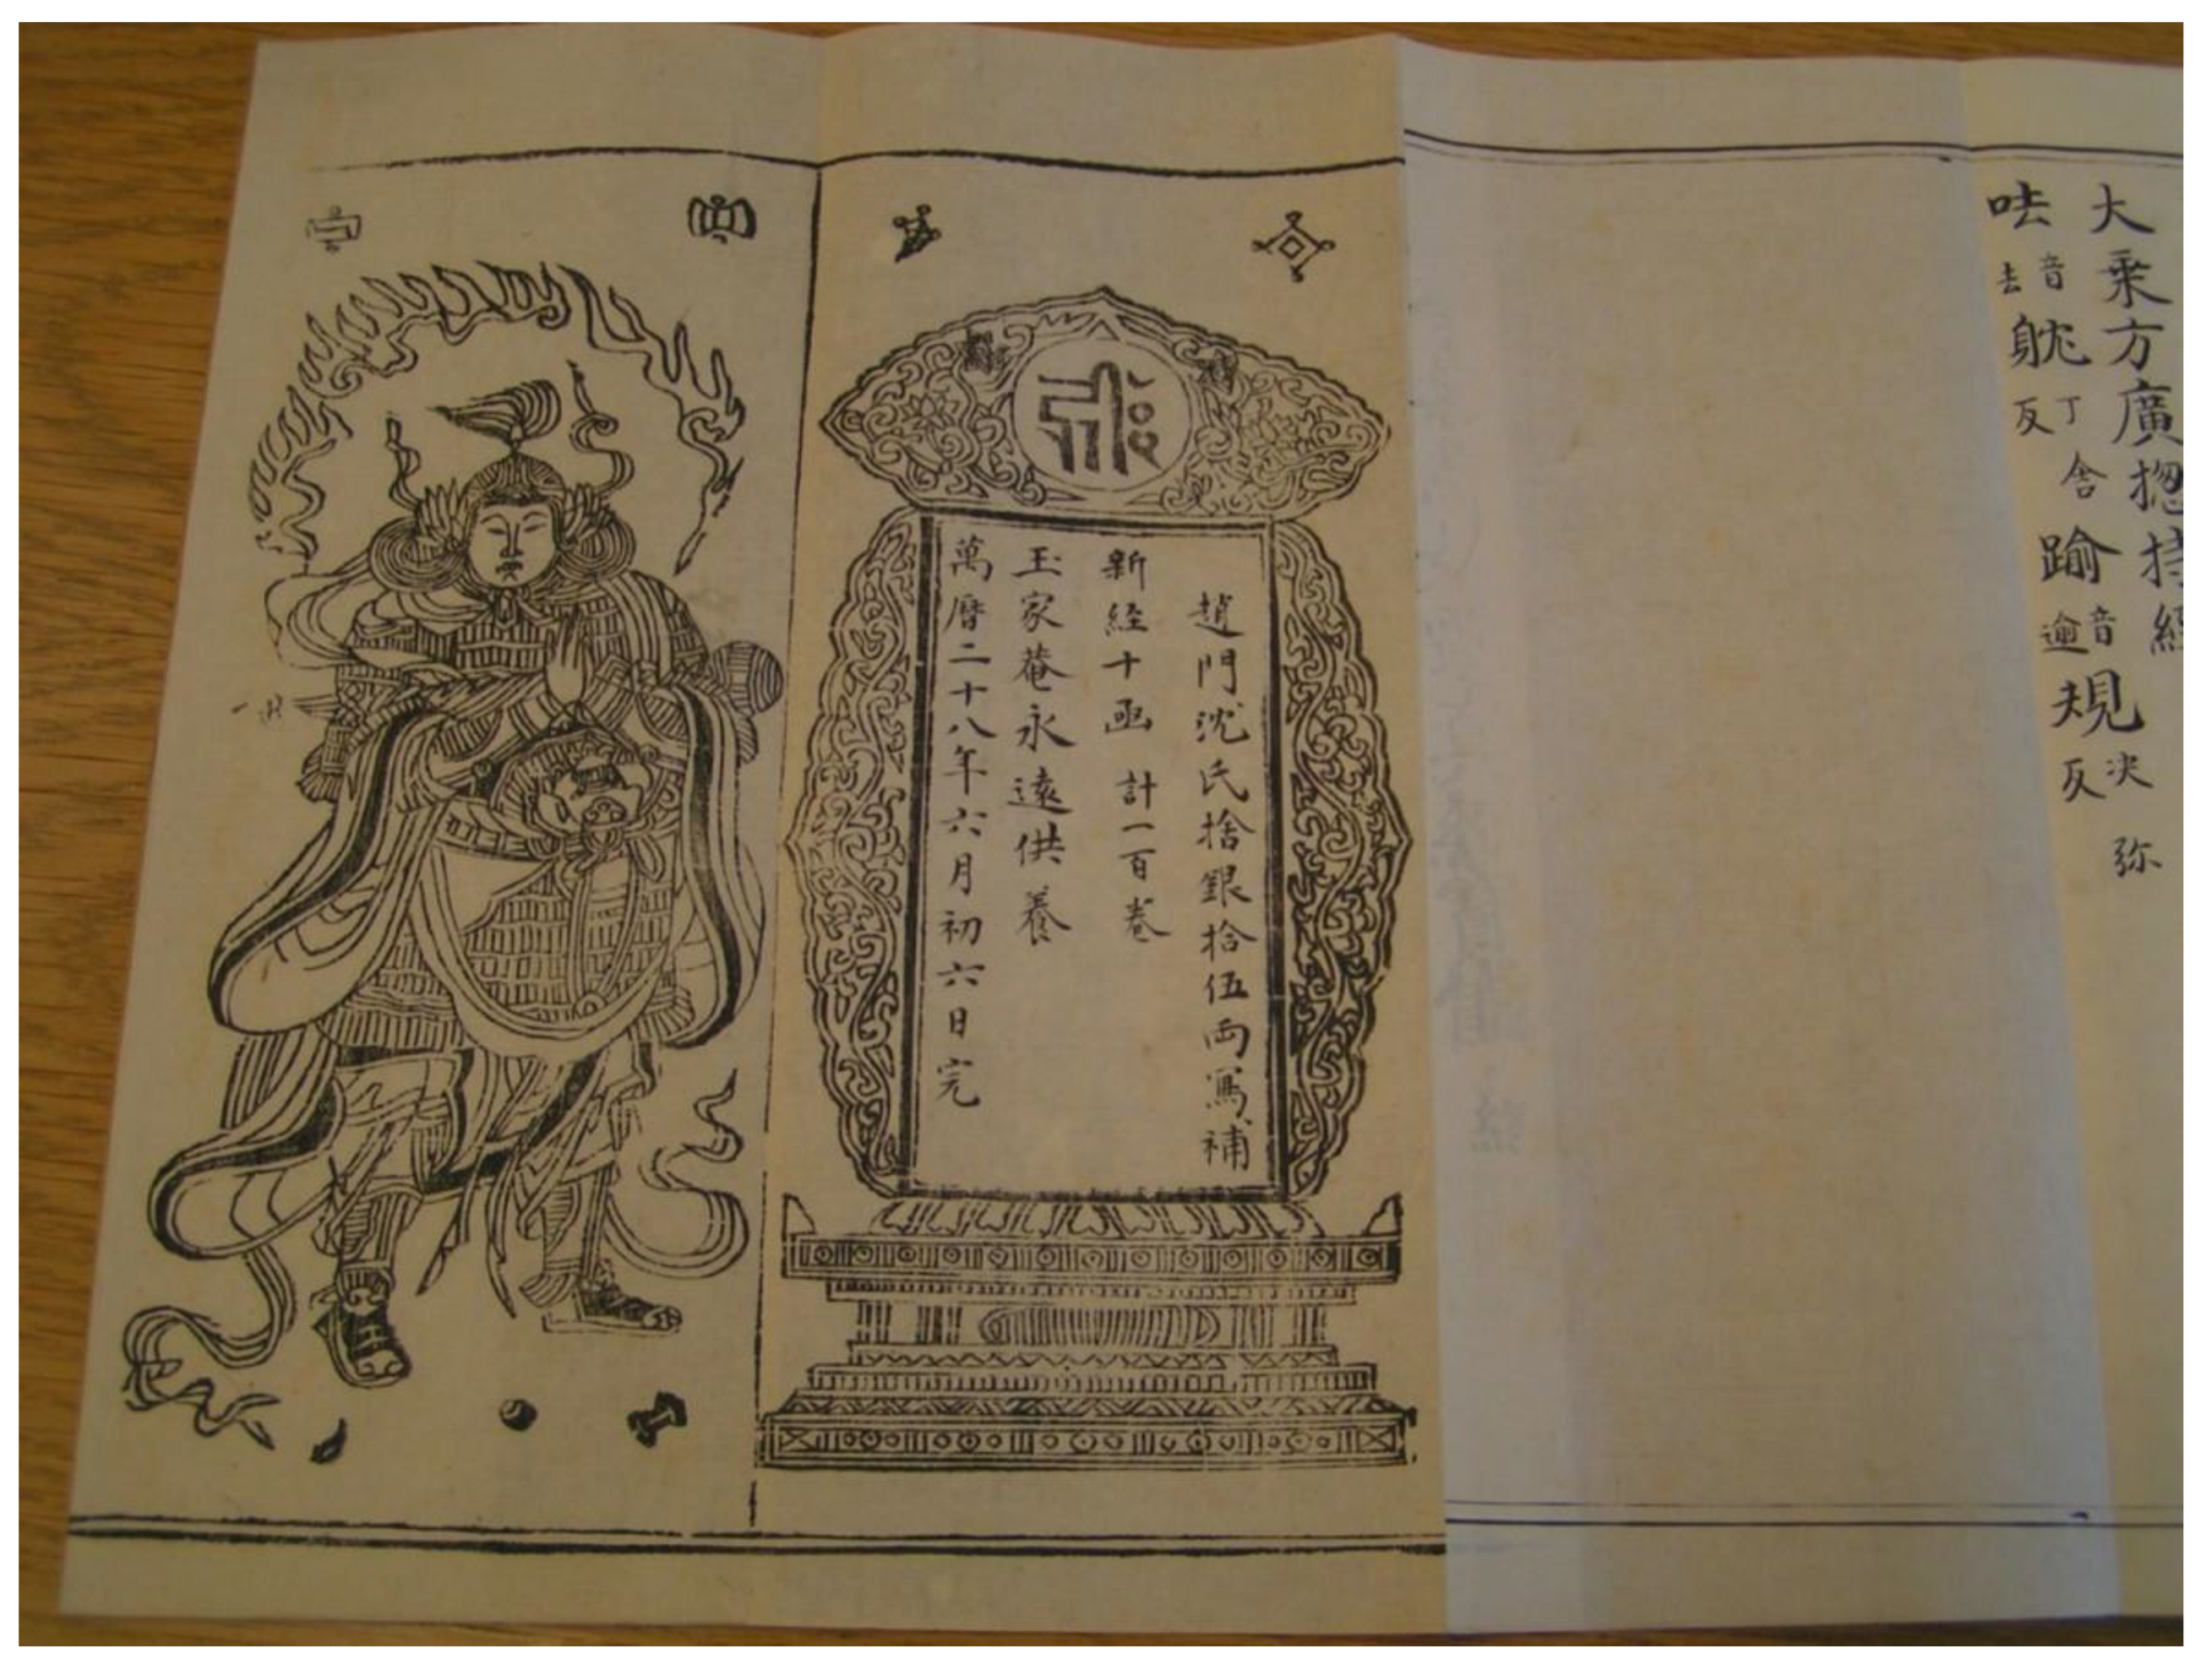 大乗方廣揔持經
呿 音去 躭 丁含反 踰 音逾 規 決弥反
趙門沈氏捨銀拾伍両寫補
新経十函 計一百巻
王家菴永遠供養
萬曆二十八年六月初六日完